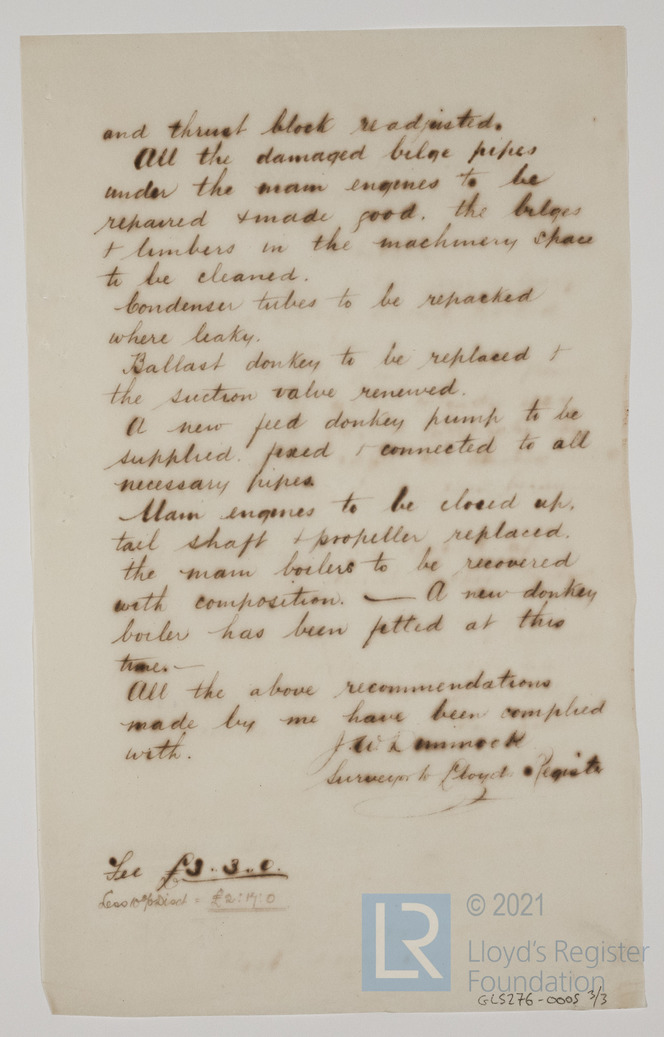 and thrust block readjusted.
All the damaged bilge pipes
under the main engines to be
repaired & made good. the bilges
& limbers in the machinery space
to be cleaned.
Condenser tubes to be repacked
where leaky.
Ballast donkey to be replaced &
the suction valve renewed.
A new feed donkey pump to be
supplied. fixed & connected to all
necessary pipes
Main engines to be closed up,
tail shaft & propeller replaced.
the main boilers to be recovered
with composition. — A new donkey
boiler has been fitted at this
time. —
All the above recommendations
made by me have been complied
with.
J W Dimmock
Surveyor to Lloyds Register
Fee £3..3..0.
Less 10 % Disct = £2:17:0
LR
© 2021
Lloyd's Register
Foundation
GLS276-0005 3/3